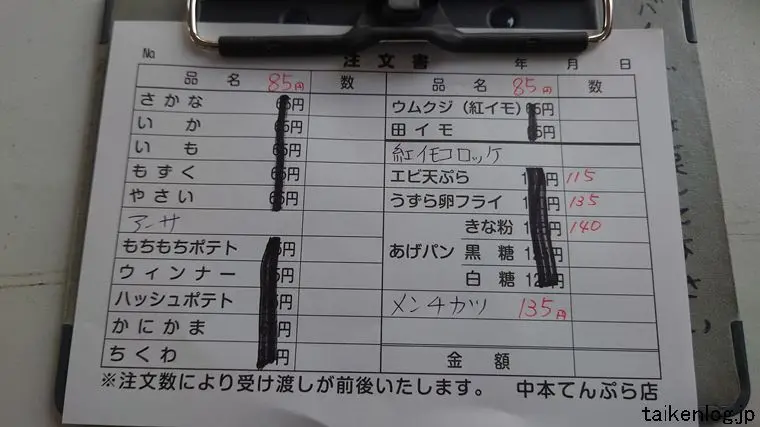 No. 注文書 年 月 日
品名 85円 数
さかな 65円
いか 65円
いも 65円
もずく 65円
やさい 65円
アーサ
もちもちポテト 円
ウィンナー 円
ハッシュポテト 円
かにかま 円
ちくわ 円
品名 85円 数
ウムクジ(紅イモ) 65円
田イモ 65円
紅イモコロッケ
エビ天ぷら 円 115
うずら卵フライ 円 135
きな粉 円 140
あげパン 黒糖 円
白糖 円
メンチカツ 135円
金額
※注文数により受け渡しが前後いたします。 中本てんぷら店
taikenlog.jp